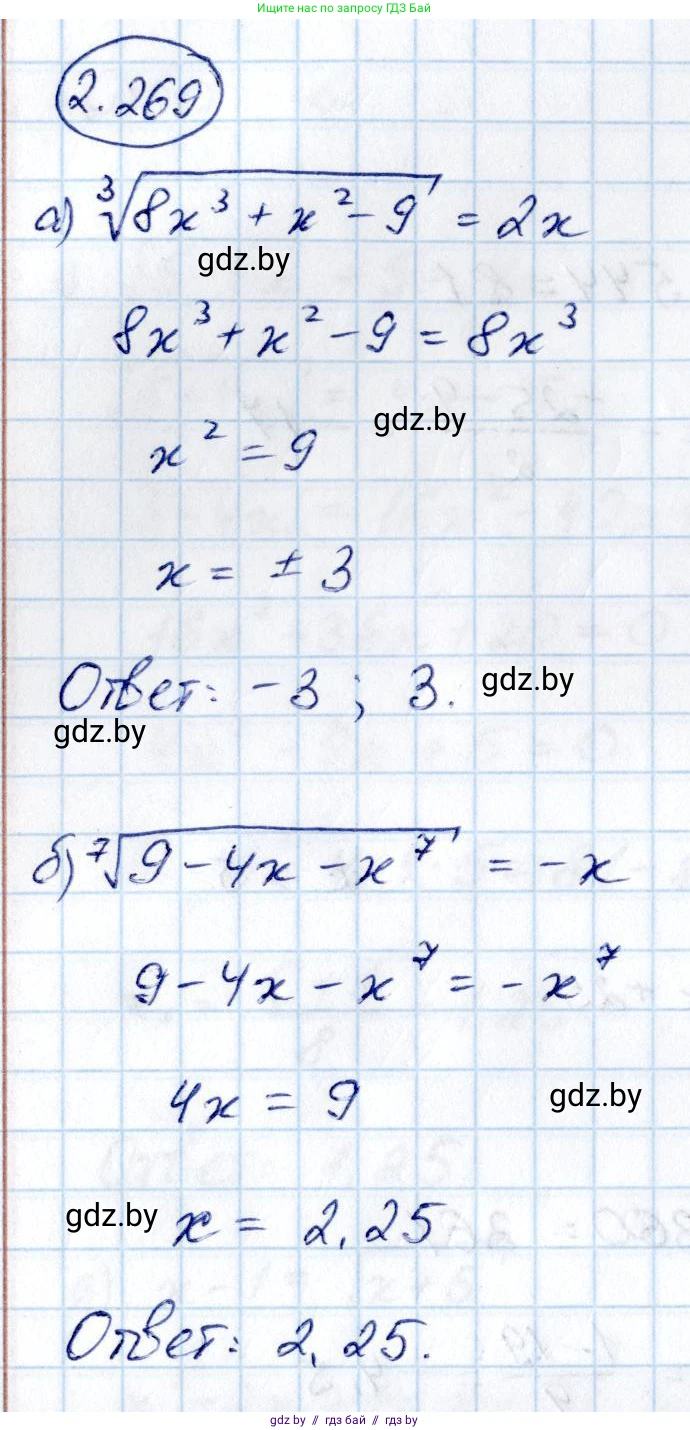 Ищите нас по запросу ГДЗ Бай
2.269
а) ∛(8x³ + x² - 9) = 2x
gdz.by
8x³ + x² - 9 = 8x³
gdz.by
x² = 9
x = ± 3
Ответ: -3 ; 3.
gdz.by
gdz.by
б) ⁷√(9 - 4x - x⁷) = -x
9 - 4x - x⁷ = -x⁷
4x = 9
gdz.by
gdz.by
x = 2,25
Ответ: 2,25.
gdz.by // гдз бай // гдз by